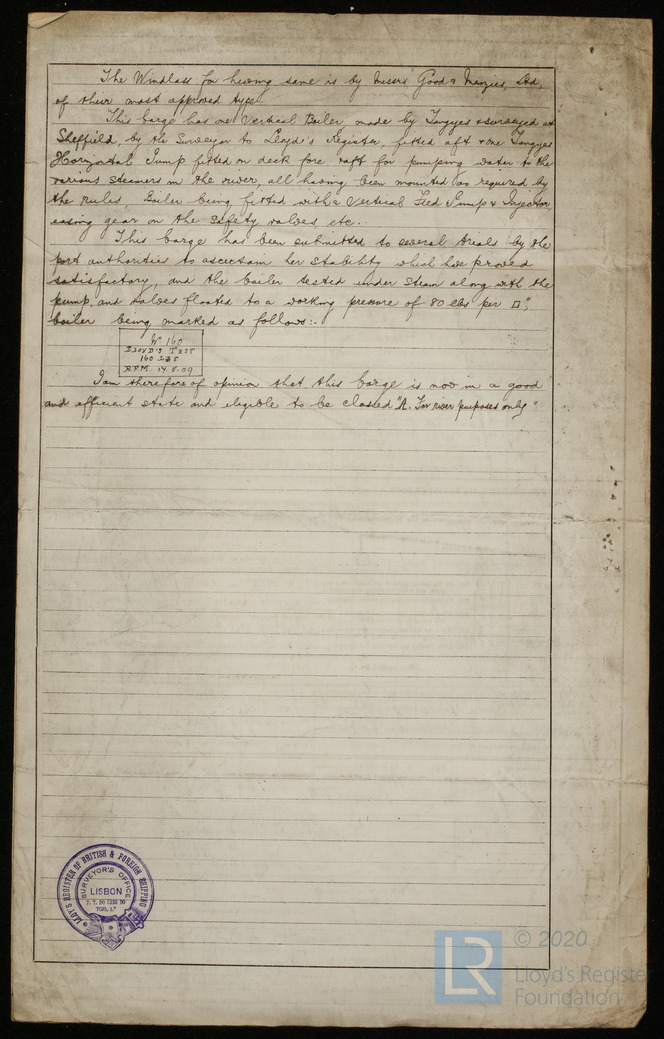 The Windlass for heaving same is by Messrs Good & Menzies, Ltd,
of their most approved type.
This barge has one Vertical Boiler, made by Tangyes & surveyed at
Sheffield, by the Surveyor to Lloyd's Register, fitted aft & one Tangyes
Horizontal Pump fitted on deck fore & aft for pumping water to the
various steamers in the river, all having been mounted as required by
the rules, Boiler being fitted with a Vertical Feed Pump & Injector
easing gear on the safety valves, etc.
This barge has been submitted to several trials by the
port authorities to ascertain her stability which have proved
satisfactory, and the boiler tested under steam along with the
pump, and valves floated to a working pressure of 80 lbs per □";
boiler being marked as follows:-
No 160
LLOYD'S TEST
160 LBS
R.F.M. 14.5.09
I am therefore of opinion that this barge is now in a good
and efficient state and eligible to be classed "A. For river purposes only"
LLOYD'S REGISTER OF BRITISH & FOREIGN SHIPPING
SURVEYOR'S OFFICE
LISBON
© 2020
LR
Lloyd's Register
Foundation